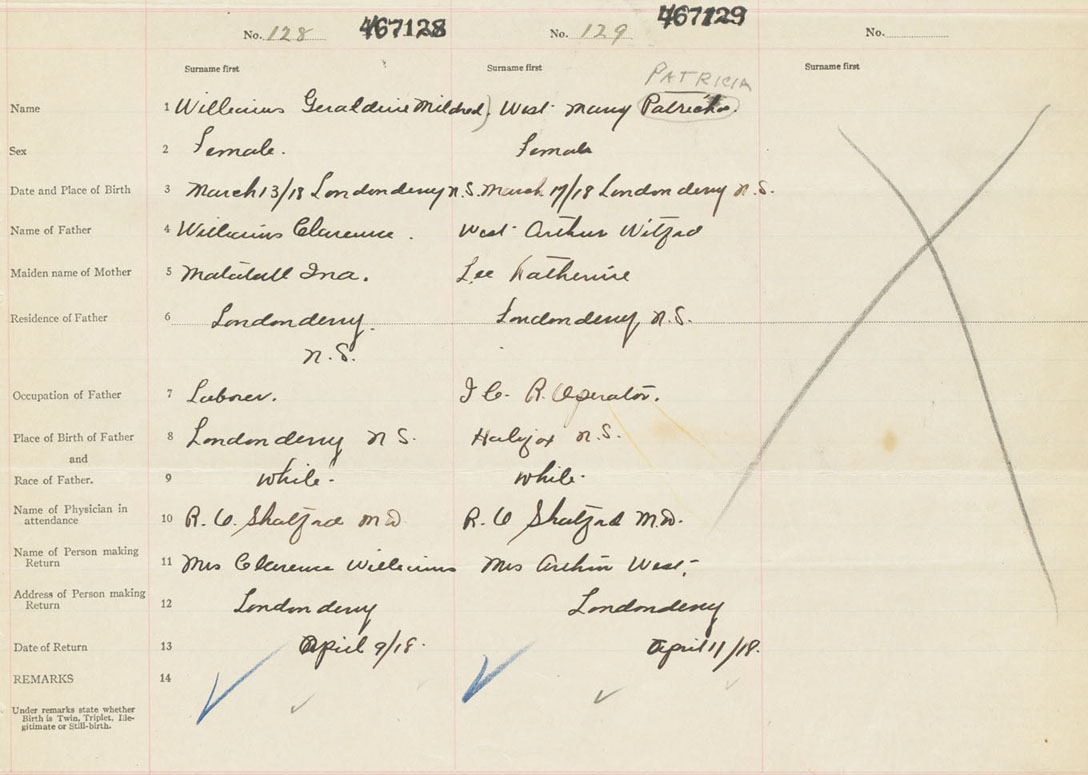 No. 128 467128 No. 129 467129 No.
Surname first Surname first Surname first
PATRICIA
Name 1 Williams Geraldine Mildred) West Mary Patricia.
Sex 2 Female. Female
Date and Place of Birth 3 March 13/18 Londonderry N.S. March 17/18 Londonderry N.S.
Name of Father 4 Williams Clarence. West Arthur
Maiden name of Mother 5 Ina. Lee Katherine
Residence of Father 6 Londonderry. Londonderry N.S.
N.S.
Occupation of Father 7 Laborer. I C. R. Operator.
Place of Birth of Father 8 Londonderry N S. Halifax N.S.
and
Race of Father. 9 White. White.
Name of Physician in
attendance 10 R. O. Shatford M.D. R. O Shatford M.D.
Name of Person making
Return 11 Mrs Clarence Williams Mrs Arthur West.
Address of Person making
Return 12 Londonderry Londonderry
Date of Return 13 April 9/18. April 11/18.
REMARKS 14
Under remarks state whether
Birth is Twin, Triplet, Ille-
gitimate or Still-birth.